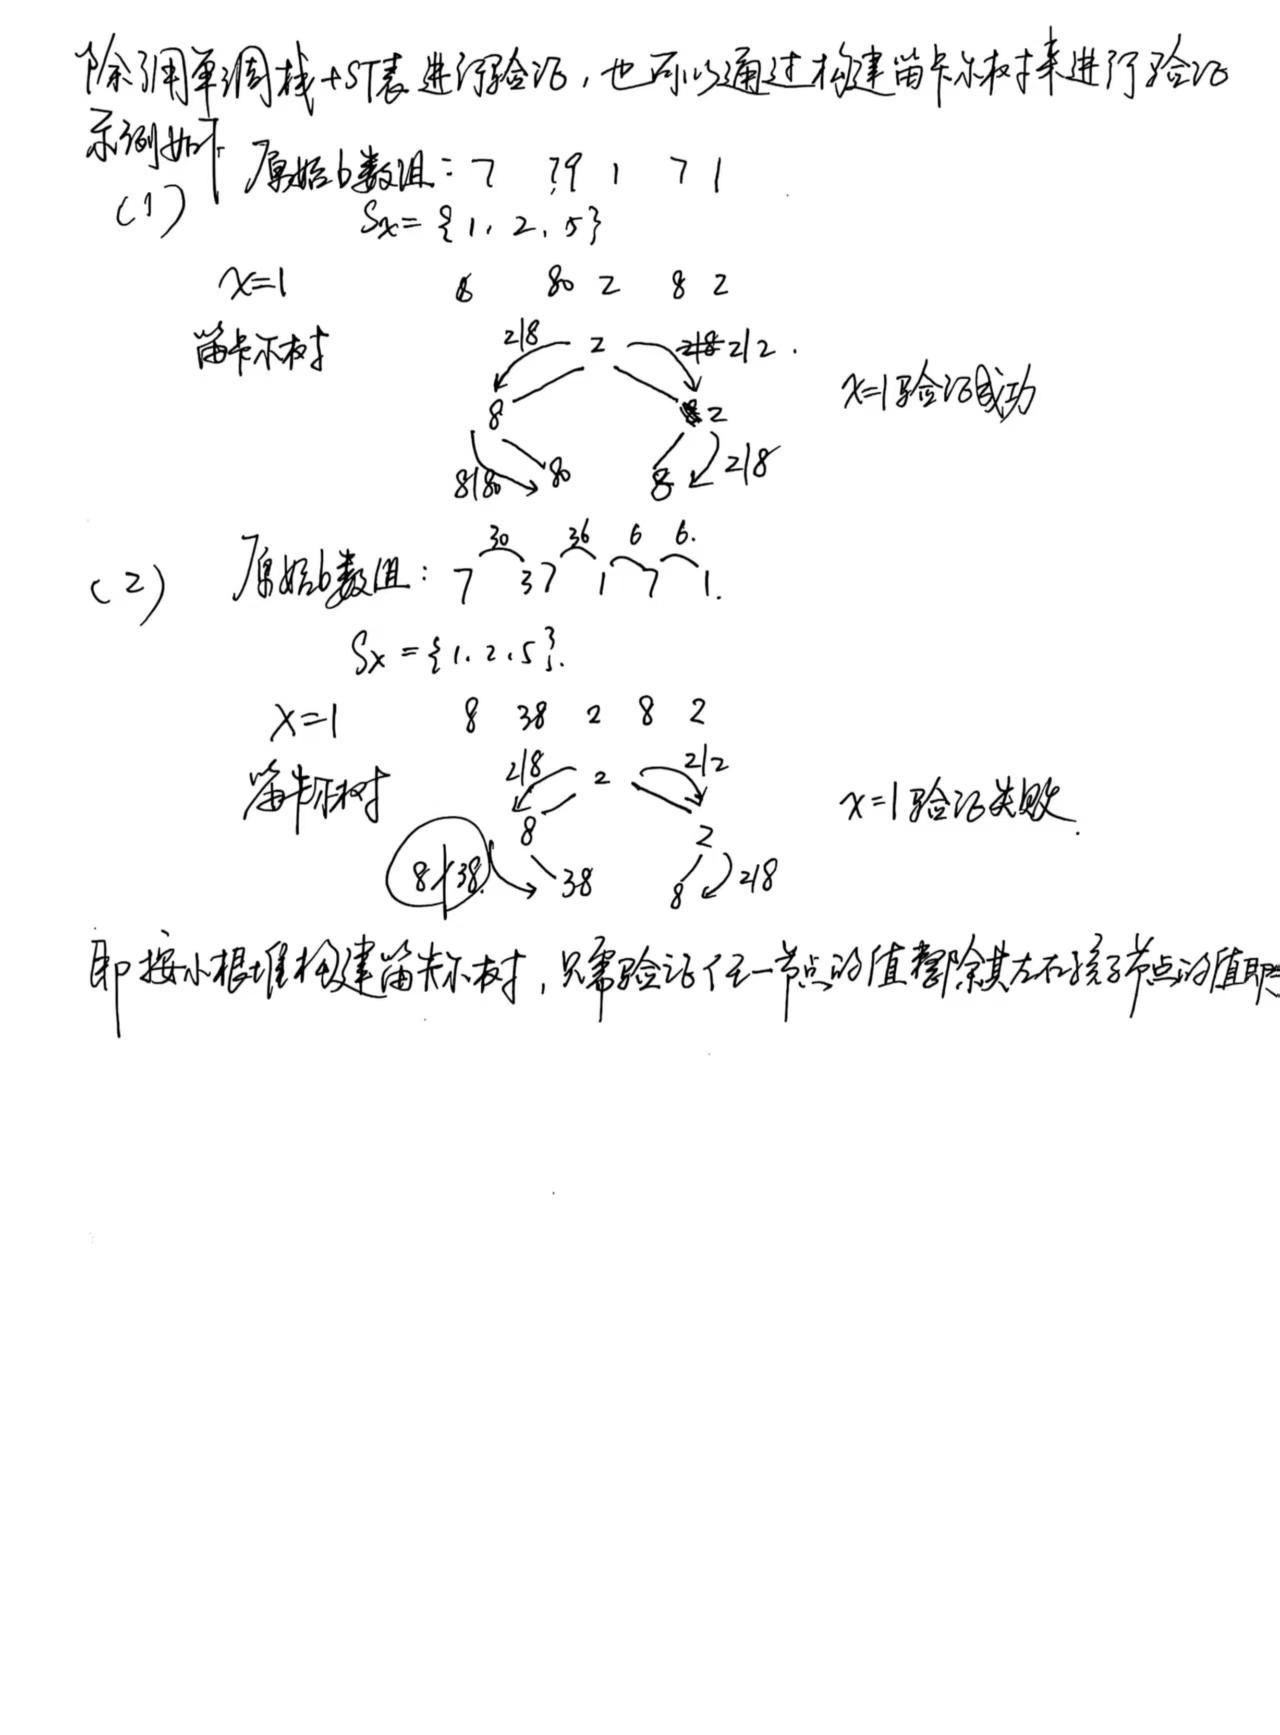 除了用单调栈+ST表进行验证，也可以通过构建笛卡尔树来进行验证
示例如下
(1) 原始b数组：7 79 1 7 1
Sx={1,2,5}
x=1 8 80 2 8 2
笛卡尔树 2|8 2 2|2.
8 2 x=1验证成功
8|80 80 8 2|8
30 36 6 6.
(2) 原始b数组：7 37 1 7 1.
Sx={1.2.5}.
x=1 8 38 2 8 2
笛卡尔树 2|8 2 2|2
8 2 x=1验证失败.
8∤38. 38 8 2|8
即按小根堆构建笛卡尔树，只需验证任一节点的值整除其左右孩子节点的值即